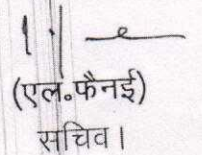 (एल.फैनई)
सचिव।